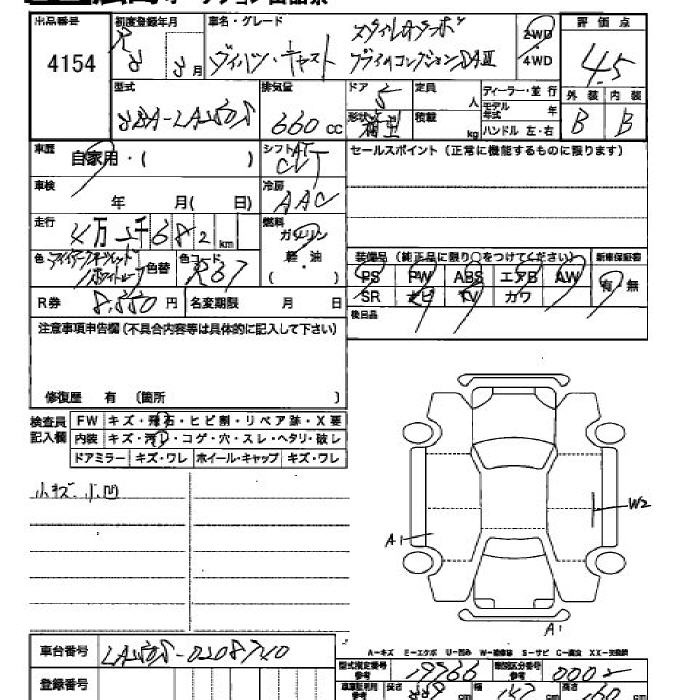 出品番号 4154
初度登録年月 8月
車名・グレード ダイハツ・キャスト スタイルGターボ
プライムコレクションSAⅢ
2WD
4WD
評価点 4.5
外装 内装
B B
型式 DBA-LA250S
排気量 660 cc
ドア 5
形状
定員 人
積載 kg
ディーラー・並行
モデル年式 年
ハンドル 左・右
車歴 自家用・( )
シフト AT CVT
セールスポイント (正常に機能するものに限ります)
車検 年 月( 日)
冷房 AAC
走行 万 千 6 8 2 km
燃料 ガソリン
軽・油
( )
色
色替
色コード R67
R券 8,550円
名変期限 月 日
装備品 (純正品に限り○をつけてください)
新車保証書
PS PW ABS エアB AW
有・無
SR ナビ TV カワ
後日品
注意事項申告欄 (不具合内容等は具体的に記入して下さい)
修復歴 有 (箇所 )
検査員記入欄
FW キズ・飛石・ヒビ割・リペア跡・X要
内装 キズ・汚レ・コゲ・穴・スレ・ヘタリ・破レ
ドアミラー キズ・ワレ ホイール・キャップ キズ・ワレ
小キズ、小凹
W2
A1
A1
A-キズ E-エクボ U-凹み W-補修跡 S-サビ C-腐食 XX-交換済
車台番号 LA250S-0208740
登録番号
型式指定番号 19766
類別区分番号 0002
長さ cm 幅 147 cm 高さ 160 cm